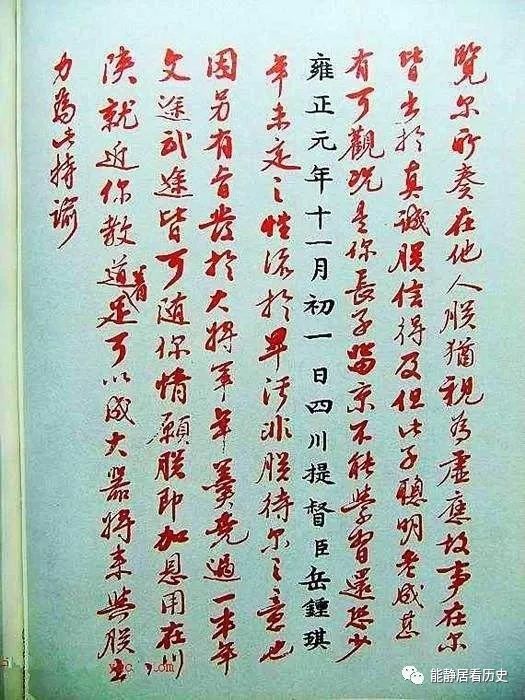 覽尔所奏在他人朕猶視為虛應故事在尔
皆出於真誠朕信得及但此子聰明老成甚
有可觀况是你長子留京不能學習還恐少
雍正元年十一月初一日四川提督臣岳鍾琪
年未定之性流於卑污非朕待尔之意也
因另有旨發於大將軍年羹堯過一半年
文途武途皆可隨你情願朕即加恩用在川
陝就近你教道着足可以成大器將来與朕出
力為此特諭
能静居看历史